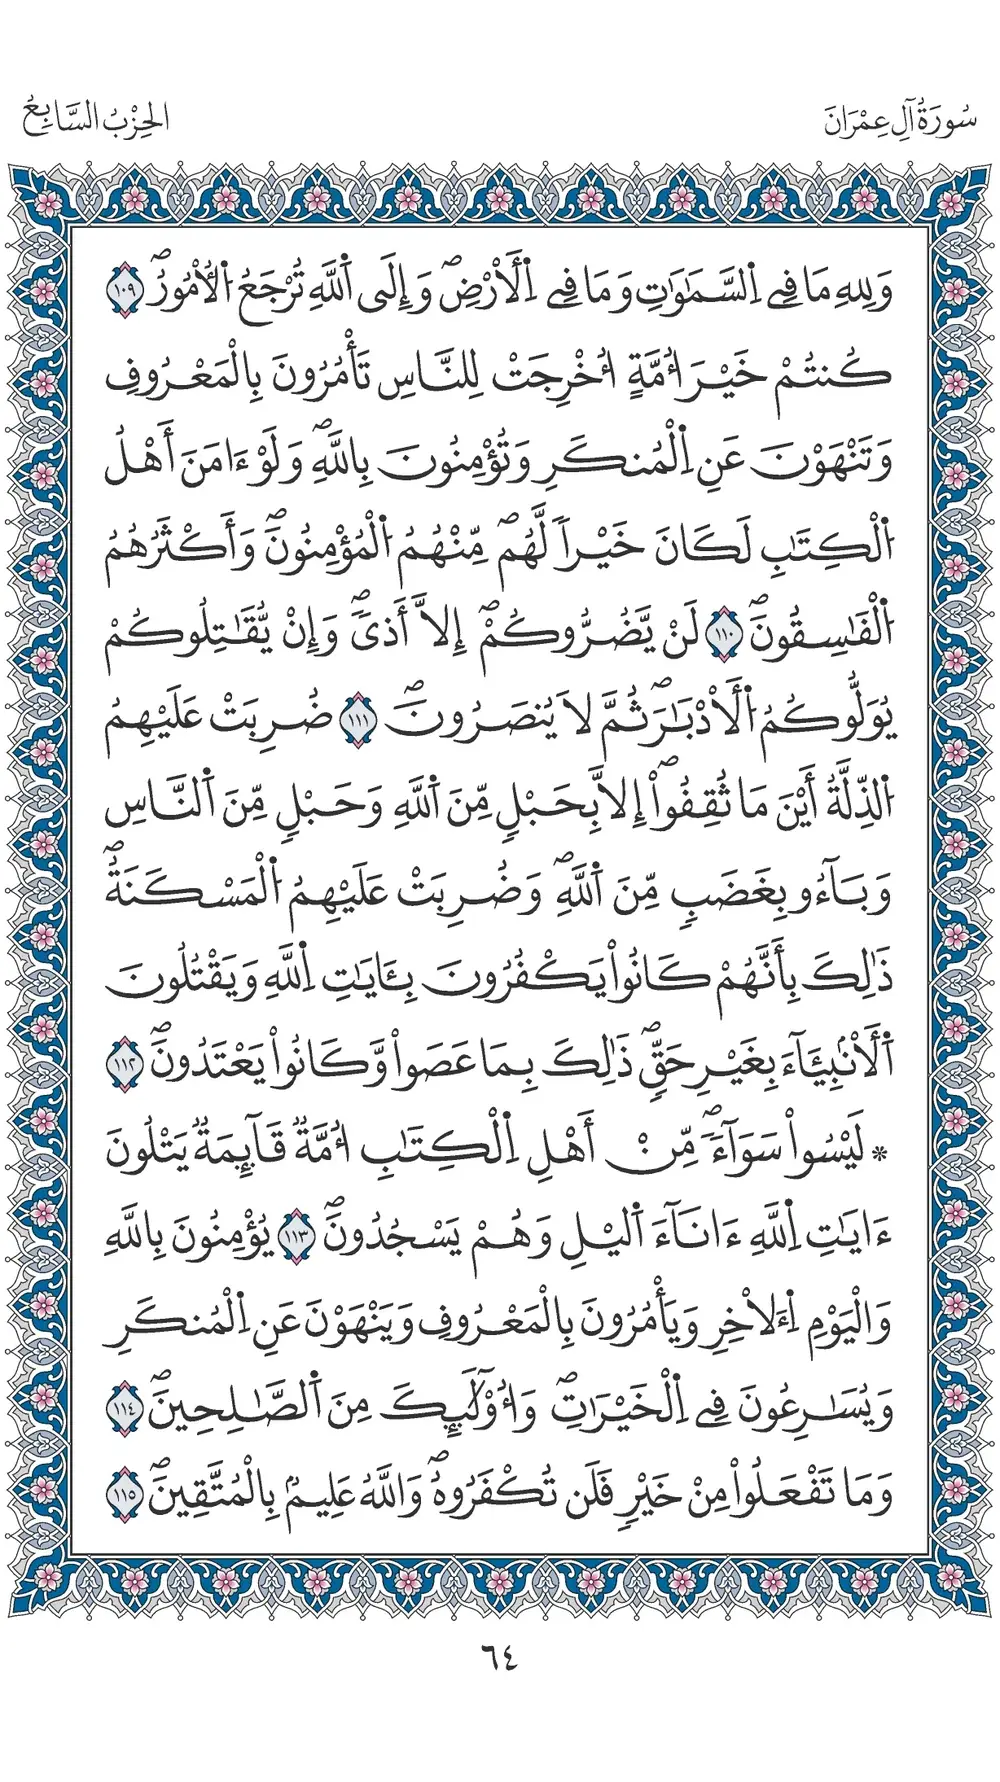 سُورَةُ آلِ عِمْرَانَ
الحِزْبُ السَّابِعُ
وَلِلهِ مَا فِے اِ۬لسَّمَٰوَٰتِ وَمَا فِے اِ۬لَارْضِۖ وَإِلَى اَ۬للَّهِ تُرْجَعُ اُ۬لُامُورُۖ ١٠٩
كُنتُمْ خَيْرَ أُمَّةٍ اُخْرِجَتْ لِلنَّاسِ تَأْمُرُونَ بِالْمَعْرُوفِ
وَتَنْهَوْنَ عَنِ اِ۬لْمُنكَرِ وَتُؤْمِنُونَ بِاللَّهِۖ وَلَوْ ءَامَنَ أَهْلُ
اُ۬لْكِتَٰبِ لَكَانَ خَيْراٗ لَّهُمۖ مِّنْهُمُ اُ۬لْمُؤْمِنُونَۖ وَأَكْثَرُهُمُ
اُ۬لْفَٰسِقُونَۖ ١١٠ لَنْ يَّضُرُّوكُمْۖ إِلَّا أَذىٗۖ وَإِنْ يُّقَٰتِلُوكُمْ
يُوَلُّوكُمُ اُ۬لَادْبَٰرَۖ ثُمَّ لَا يُنصَرُونَۖ ١١١ ضُرِبَتْ عَلَيْهِمُ
اُ۬لذِّلَّةُ أَيْنَ مَا ثُقِفُواْۖ إِلَّا بِحَبْلٖ مِّنَ اَ۬للَّهِ وَحَبْلٖ مِّنَ اَ۬لنَّاسِ
وَبَآءُو بِغَضَبٖ مِّنَ اَ۬للَّهِۖ وَضُرِبَتْ عَلَيْهِمُ اُ۬لْمَسْكَنَةُۖ
ذَٰلِكَ بِأَنَّهُمْ كَانُواْ يَكْفُرُونَ بِـَٔايَٰتِ اِ۬للَّهِ وَيَقْتُلُونَ
اَ۬لَانۢبِـَٔآءَ بِغَيْرِ حَقّٖۖ ذَٰلِكَ بِمَا عَصَواْ وَّكَانُواْ يَعْتَدُونَۖ ١١٢
* لَيْسُواْ سَوَآءٗۖ مِّنْ أَهْلِ اِ۬لْكِتَٰبِ أُمَّةٞ قَآئِمَةٞ يَتْلُونَ
ءَايَٰتِ اِ۬للَّهِ ءَانَآءَ اَ۬ليْلِ وَهُمْ يَسْجُدُونَۖ ١١٣ يُؤْمِنُونَ بِاللَّهِ
وَالْيَوْمِ اِ۬لَاخِرِ وَيَأْمُرُونَ بِالْمَعْرُوفِ وَيَنْهَوْنَ عَنِ اِ۬لْمُنكَرِ
وَيُسَٰرِعُونَ فِے اِ۬لْخَيْرَٰتِۖ وَأُوْلَٰٓئِكَ مِنَ اَ۬لصَّٰلِحِينَۖ ١١٤
وَمَا تَفْعَلُواْ مِنْ خَيْرٖ فَلَن تُكْفَرُوهُۖ وَاللَّهُ عَلِيمُۢ بِالْمُتَّقِينَۖ ١١٥
٦٤